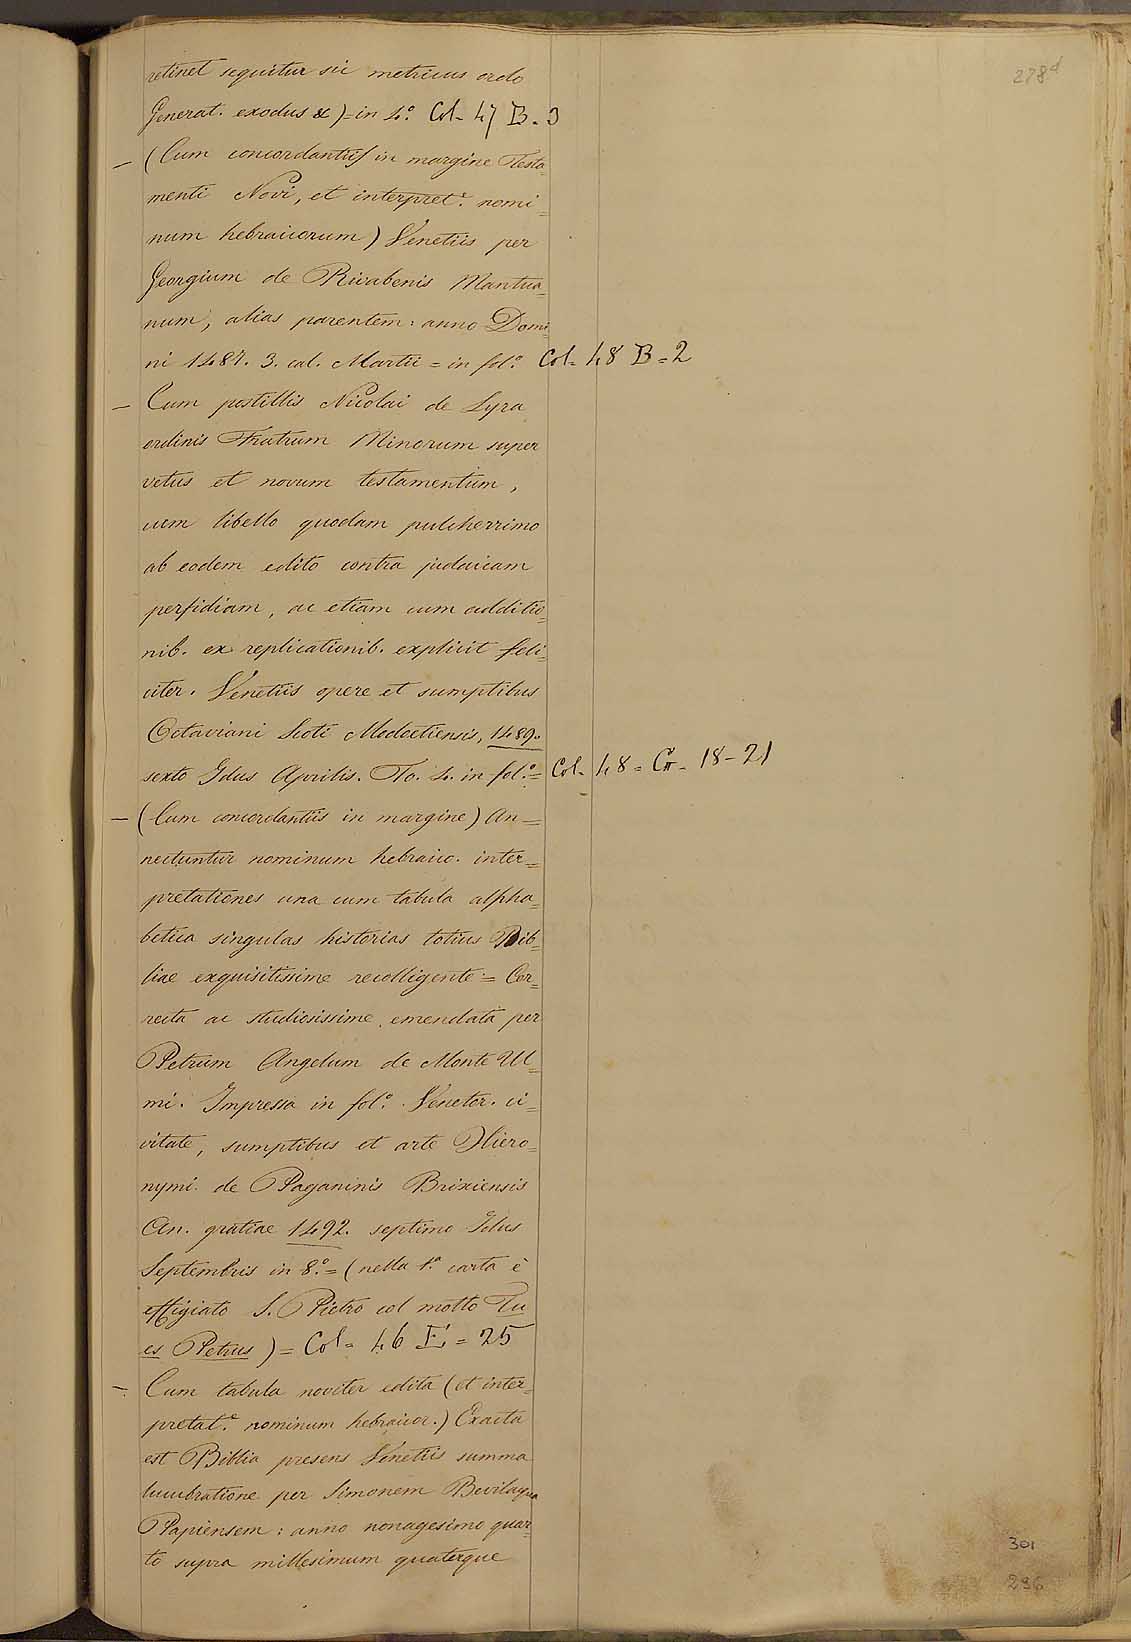 278d
retinet sequitur sic metricus ordo
Generat. exodus &) = in 4.° Col. 47 B. 3
— (Cum concordantiis in margine Testa=
menti Novi, et interpret.e nomi=
num hebraicorum) Venetiis per
Georgium de Rivabenis Mantua=
num, alias parentem: anno Domi=
ni 1487. 3. cal. Martii = in fol.° Col. 48 B = 2
— Cum postillis Nicolai de Lyra
ordinis Fratrum Minorum super
vetus et novum testamentum,
cum libello quodam pulcherrimo
ab eodem edito contra judaicam
perfidiam, ac etiam cum additio=
nib. ex replicationib. explicit feli=
citer. Venetiis opere et sumptibus
Octaviani Scoti Modoetiensis, 1489.
sexto Idus Aprilis. To. 4. in fol.° = Col. 48 = Cr. 18 - 21
— (Cum concordantiis in margine) An=
nectuntur nominum hebraic. inter=
pretationes una cum tabula alpha=
betica singulas historias totius Bib=
liae exquisitissime recolligente = Cor=
recta ac studiosissime emendata per
Petrum Angelum de Monte Ul=
mi. Impressa in fol.° Venetor. ci=
vitate, sumptibus et arte Hiero=
nymi de Paganinis Brixiensis
An. gratiae 1492. septimo Idus
Septembris in 8.° = (nella 1.a carta è
effigiato S. Pietro col motto Tu
es Petrus) = Col = 46 E = 25
— Cum tabula noviter edita (et inter=
pretat.e nominum hebraicor.) Exacta
est Biblia presens Venetiis summa
lucubratione per Simonem Bevilaqua
Papiensem: anno nonagesimo quar=
to supra millesimum quaterque
301
296